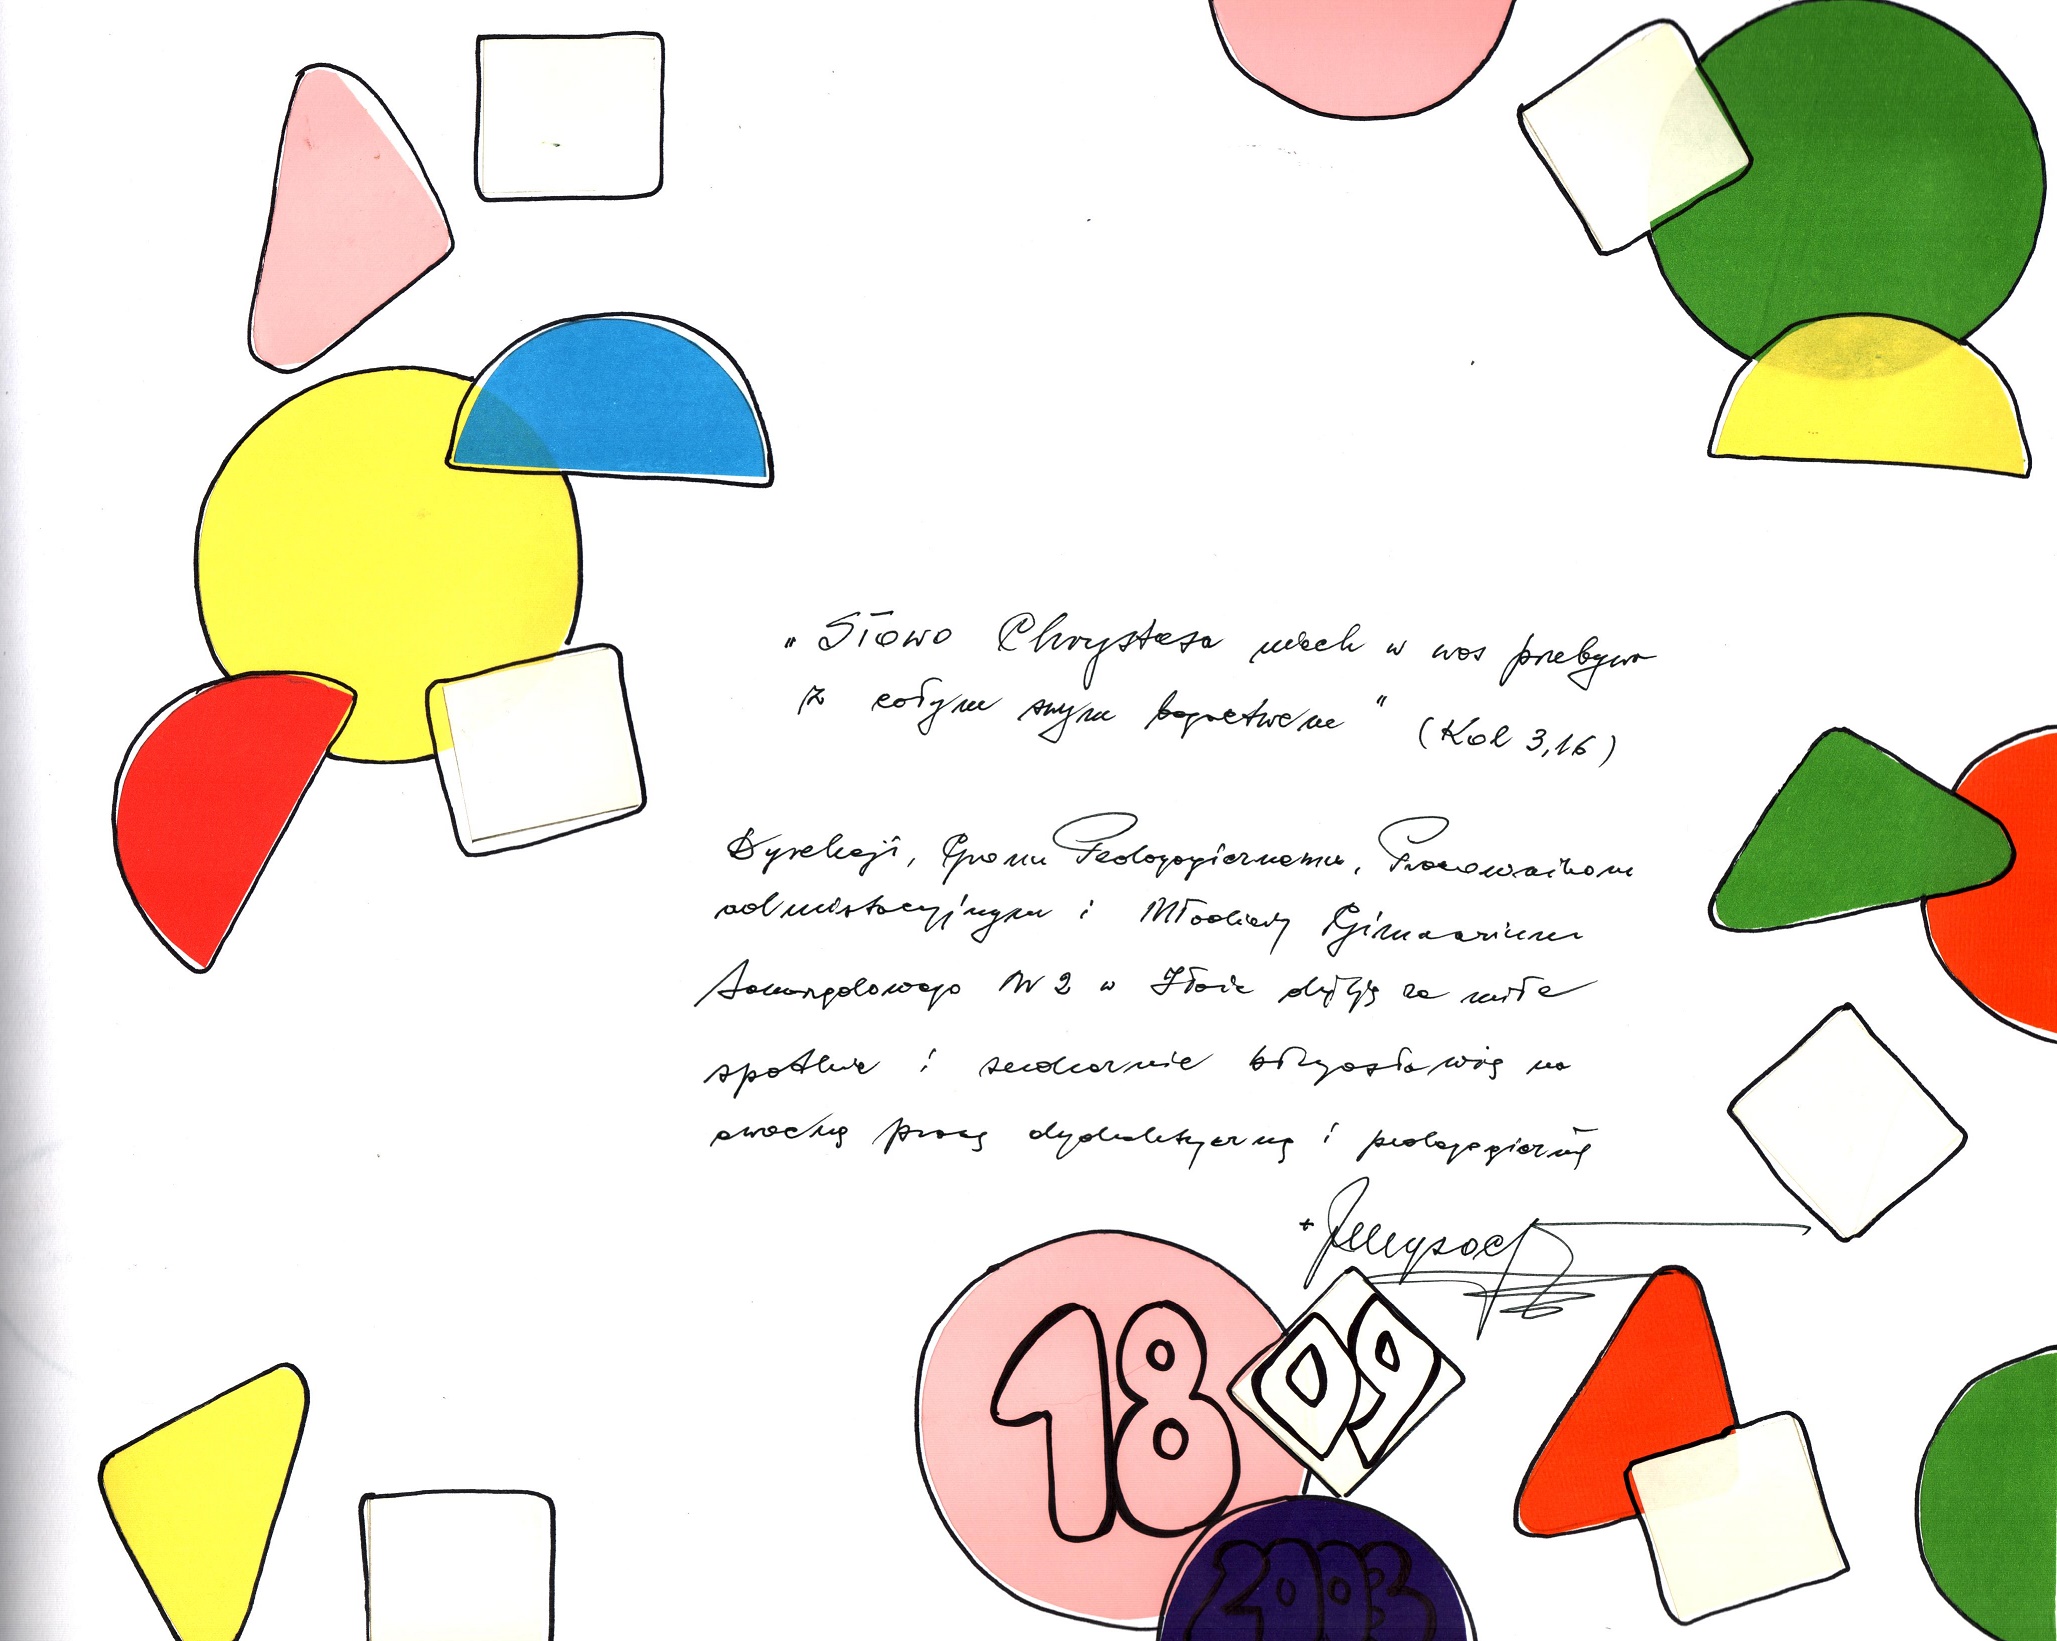 „Słowo Chrystusa niech w was przebywa
z całym swym bogactwem" (Kol 3,16)
Dyrekcji, Gronu Pedagogicznemu, Pracownikom
admistacyjnym i Młodzieży Gimnazjum
Samorządowego Nr 2 w Iłży dziękuję za miłe
spotkanie i serdecznie błogosławię na
owocną pracę dydaktyczną i pedagogiczną
+
18
09
2003